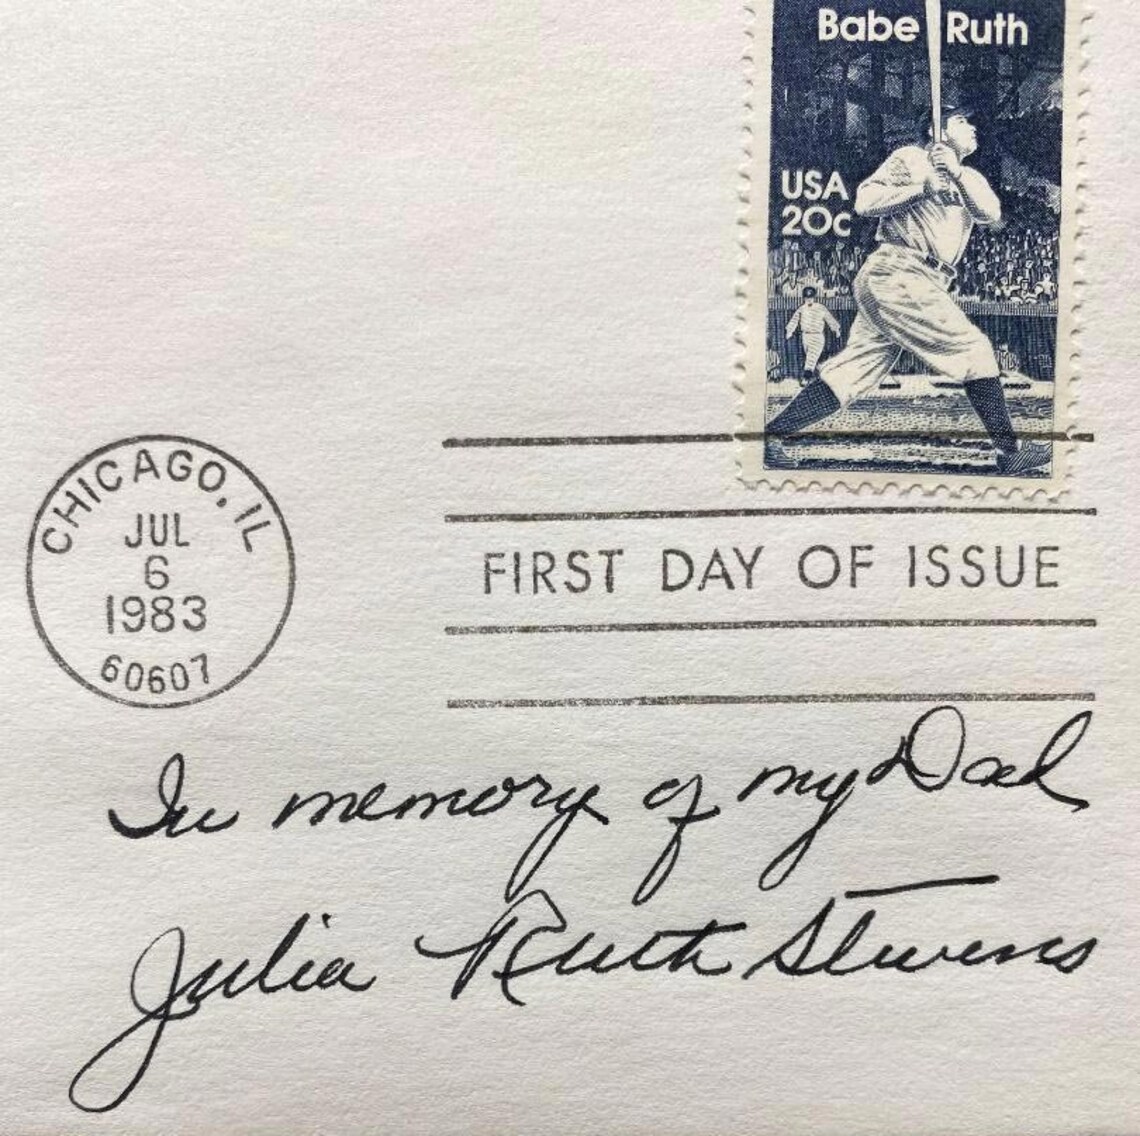 Babe Ruth
USA
20c
CHICAGO, IL
JUL
6
1983
60607
FIRST DAY OF ISSUE
In memory of my Dad
Julia Ruth Stevens